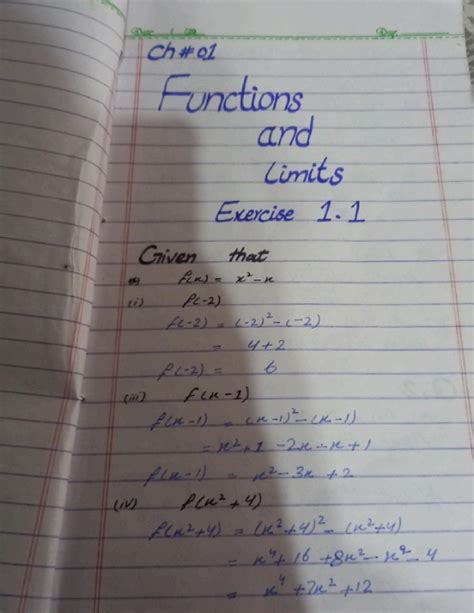 Date
Day
Ch#01
Functions
and
Limits
Exercise 1.1
Given that
f(x) = x² - x
(i) f(-2)
f(-2) = (-2)² - (-2)
= 4+2
f(-2) = 6
(iii) f(x-1)
f(x-1) = (x-1)² - (x-1)
= x²+1 -2x -x +1
f(x-1) = x² - 3x + 2
(iv) f(x²+4)
f(x²+4) = (x²+4)² - (x²+4)
= x⁴ + 16 + 8x² - x² - 4
= x⁴ + 7x² + 12